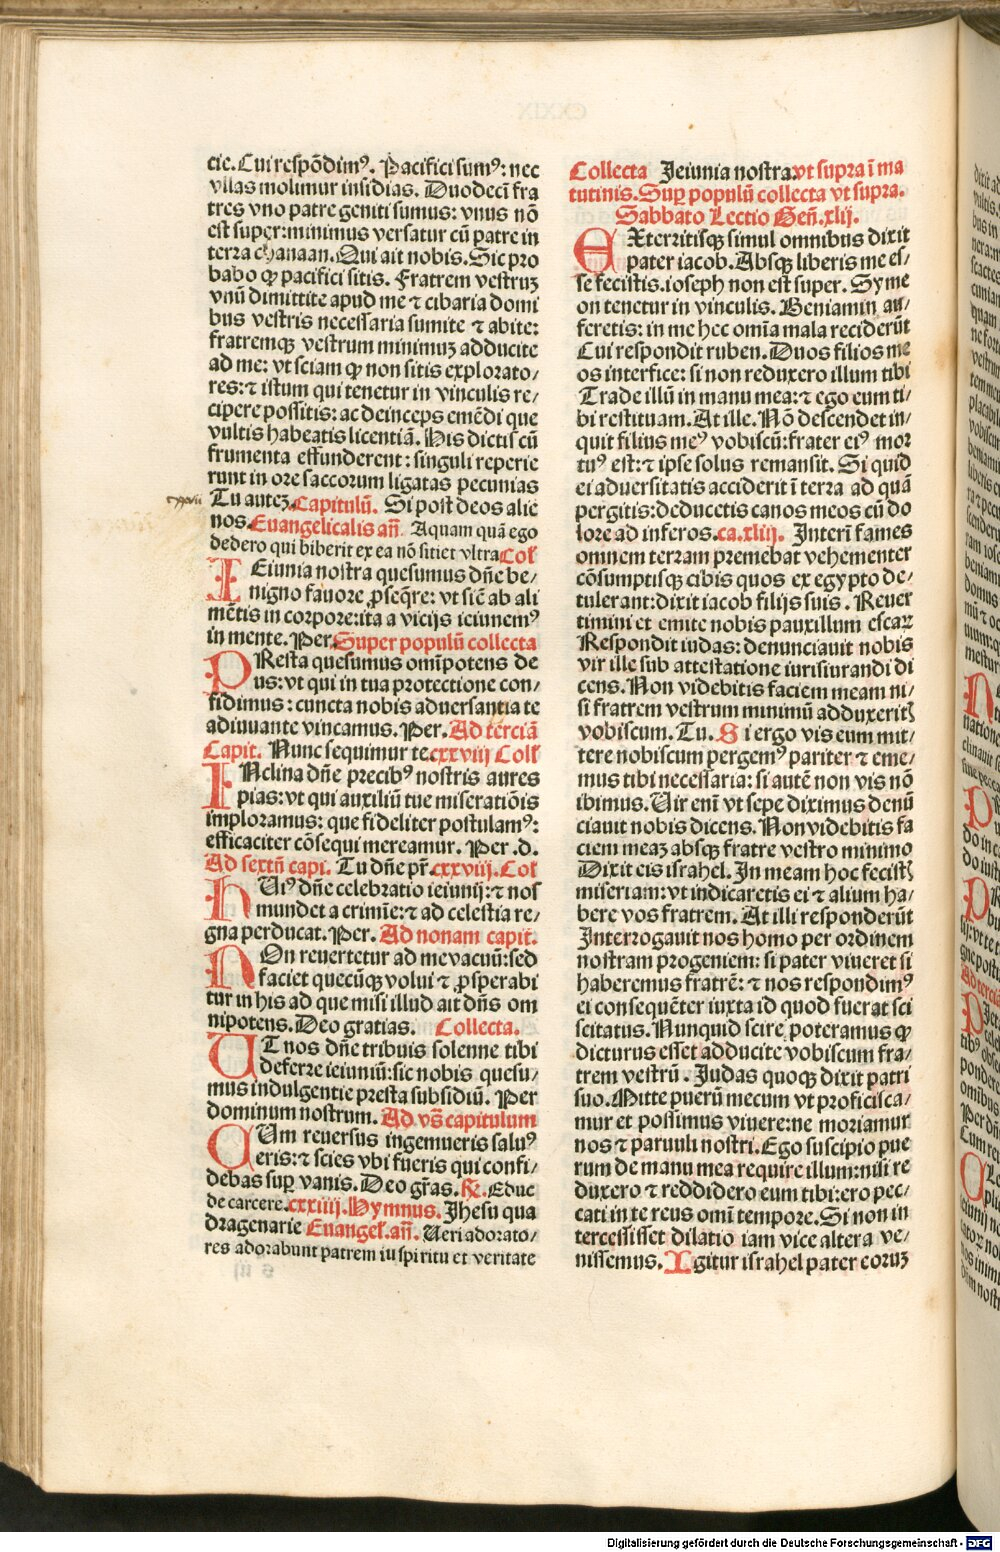 cie. Cui respōdimꝰ. Pacifici sumꝰ: nec
vllas molimur insidias. Duodecī fra
tres vno patre geniti sumus: vnus nō
est super: minimus versatur cū patre in
terra chanaan. Qui ait nobis. Sic pro
babo ꝙ pacifici sitis. Fratrem vestruꝫ
vnū dimittite apud me ⁊ cibaria domi
bus vestris necessaria sumite ⁊ abite:
fratremqꝫ vestrum minimuꝫ adducite
ad me: vt sciam ꝙ non sitis explorato/
res: ⁊ istum qui tenetur in vinculis re/
cipere possitis: ac deinceps emēdi que
vultis habeatis licentiā. His dictis cū
frumenta effunderent: singuli reperie
runt in ore saccorum ligatas pecunias
Tu auteꝫ. Capitulū. Si post deos alie
nos. Euangelicalis añ. Aquam quā ego
dedero qui biberit ex ea nō sitiet vltra Coł
IEiunia nostra quesumus dñe be/
nigno fauore ꝓseq̄re: vt sic̄ ab ali
mētis in corpore: ita a vicijs ieiunemꝰ
in mente. Per. Super populū collecta
PResta quesumus omīpotens de
us: vt qui in tua protectione con/
fidimus: cuncta nobis aduersantia te
adiuuante vincamus. Per. Ad terciā
Capit. Nunc sequimur te. cxxviij Coł
INclina dñe precibꝰ nostris aures
pias: vt qui auxiliū tue miseratiōis
imploramus: que fideliter postulamꝰ:
efficaciter cōsequi mereamur. Per .d.
Ad sextā capi. Tu dñe pr̄. cxxviij. Coł
HUiꝰ dñe celebratio ieiunij: ⁊ nos
mundet a crimīe: ⁊ ad celestia re/
gna perducat. Per. Ad nonam capit.
NOn reuertetur ad me vacuū: sed
faciet quecūqꝫ volui ⁊ ꝓsperabi
tur in his ad que misi illud ait dñs om
nipotens. Deo gratias. Collecta.
UT nos dñe tribuis solenne tibi
deferre ieiuniū: sic nobis quesu/
mus indulgentie presta subsidiū. Per
dominum nostrum. Ad vs̄ capitulum
CUm reuersus ingemueris saluꝰ
eris: ⁊ scies vbi fueris qui confi/
debas suꝑ vanis. Deo gr̄as. R̄. Educ
de carcere. cxxiiij. Hymnus. Jhesu qua
dragenarie Euangeł. añ. Ueri adorato/
res adorabunt patrem iu spiritu et veritate
Collecta Jeiunia nostra. vt supra ī ma
tutinis. Suꝑ populū collecta vt supra.
Sabbato Lectio Geñ. xlij.
EXterritisqꝫ simul omnibus dixit
pater iacob. Absqꝫ liberis me es/
se fecistis. ioseph non est super. Syme
on tenetur in vinculis. Beniamin au/
feretis: in me hec omīa mala reciderūt
Cui respondit ruben. Duos filios me
os interfice: si non reduxero illum tibi
Trade illū in manu mea: ⁊ ego eum ti/
bi restituam. At ille. Nō descendet in/
quit filius meꝰ vobiscū: frater eiꝰ mor
tuꝰ est: ⁊ ipse solus remansit. Si quid
ei aduersitatis acciderit ī terra ad quā
pergitis: deducetis canos meos cū do
lore ad inferos. ca. xliij. Interī fames
omnem terram premebat vehementer
cōsumptisqꝫ cibis quos ex egypto de/
tulerant: dixit iacob filijs suis. Reuer
timini et emite nobis pauxillum escaꝝ
Respondit iudas: denunciauit nobis
vir ille sub attestatione iurisiurandi di
cens. Non videbitis faciem meam ni/
si fratrem vestrum minimū adduxeritꝭ
vobiscum. Tu. Si ergo vis eum mit/
tere nobiscum pergemꝰ pariter ⁊ eme/
mus tibi necessaria: si autē non vis nō
ibimus. Uir enī vt sepe diximus denū
ciauit nobis dicens. Non videbitis fa
ciem meaꝫ absqꝫ fratre vestro minimo
Dixit eis israhel. In meam hoc fecistꝭ
miseriam: vt indicaretis ei ⁊ alium ha/
bere vos fratrem. At illi responderūt
Interrogauit nos homo per ordinem
nostram progeniem: si pater viueret si
haberemus fratrē: ⁊ nos respondimꝰ
ei consequēter iuxta id quod fuerat sci
scitatus. Nunquid scire poteramus ꝙ
dicturus esset adducite vobiscum fra/
trem vestrū. Judas quoqꝫ dixit patri
suo. Mitte puerū mecum vt proficisca/
mur et possimus viuere: ne moriamur
nos ⁊ paruuli nostri. Ego suscipio pue
rum de manu mea require illum: nisi re
duxero ⁊ reddidero eum tibi: ero pec/
cati in te reus omī tempore. Si non in
tercessisset dilatio iam vice altera ve/
nissemus. Igitur israhel pater eoruꝫ
Digitalisierung gefördert durch die Deutsche Forschungsgemeinschaft - DFG